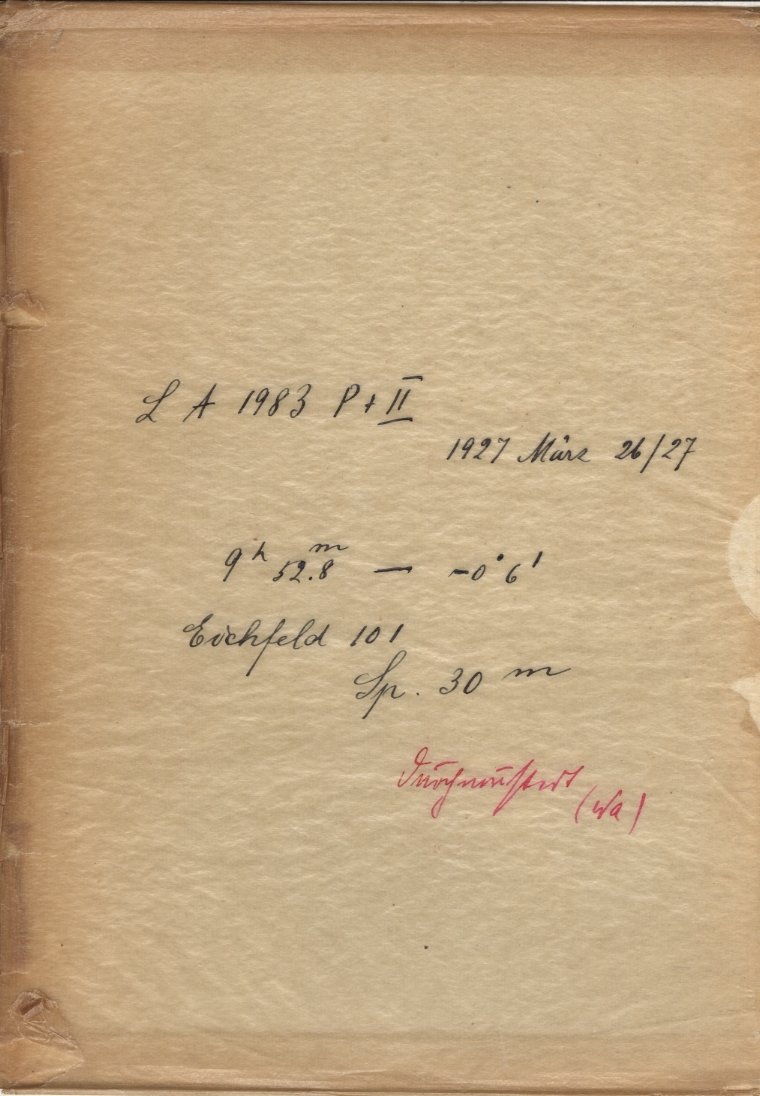 L A 1983 P + II
1927 März 26/27
9h 52.8m — -0° 6'
Eichfeld 101
Sp. 30 m
Durchmustert
(Wa)